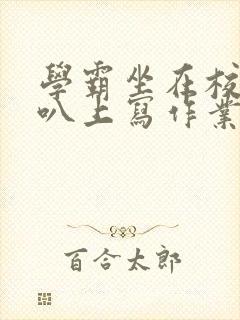 學霸坐在校
叭上寫作業
百合太郎